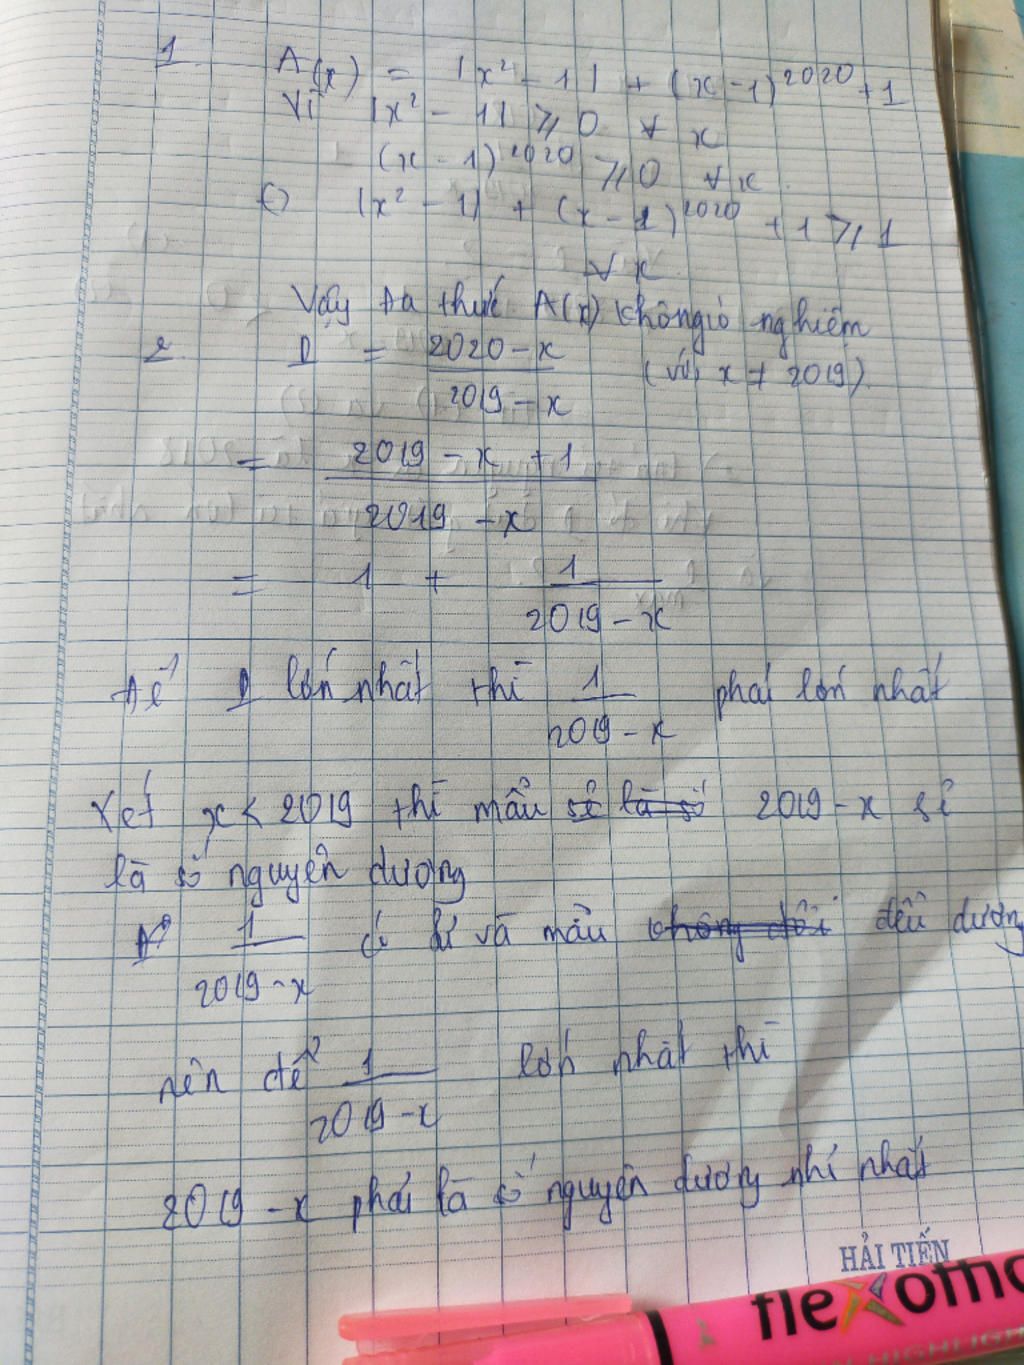 1. A(x) = |x² - 1| + (x - 1)²⁰²⁰ + 1
Vì |x² - 1| ⩾ 0 ∀ x
(x - 1)²⁰²⁰ ⩾ 0 ∀ x
|x² - 1| + (x - 1)²⁰²⁰ + 1 ⩾ 1
∀ x
Vậy đa thức A(x) không có nghiệm
2. D = (2020 - x)/(2019 - x) (với x ≠ 2019)
= (2019 - x + 1)/(2019 - x)
= 1 + 1/(2019 - x)
Để D lớn nhất thì 1/(2019 - x) phải lớn nhất
Xét x < 2019 thì mẫu sẽ là số 2019 - x sẽ
là số nguyên dương
1/(2019 - x) có tử và mẫu không đổi đều dương
nên để 1/(2019 - x) lớn nhất thì
2019 - x phải là số nguyên dương nhỏ nhất
HẢI TIẾN
flexoffice
HIGHLIGHTER